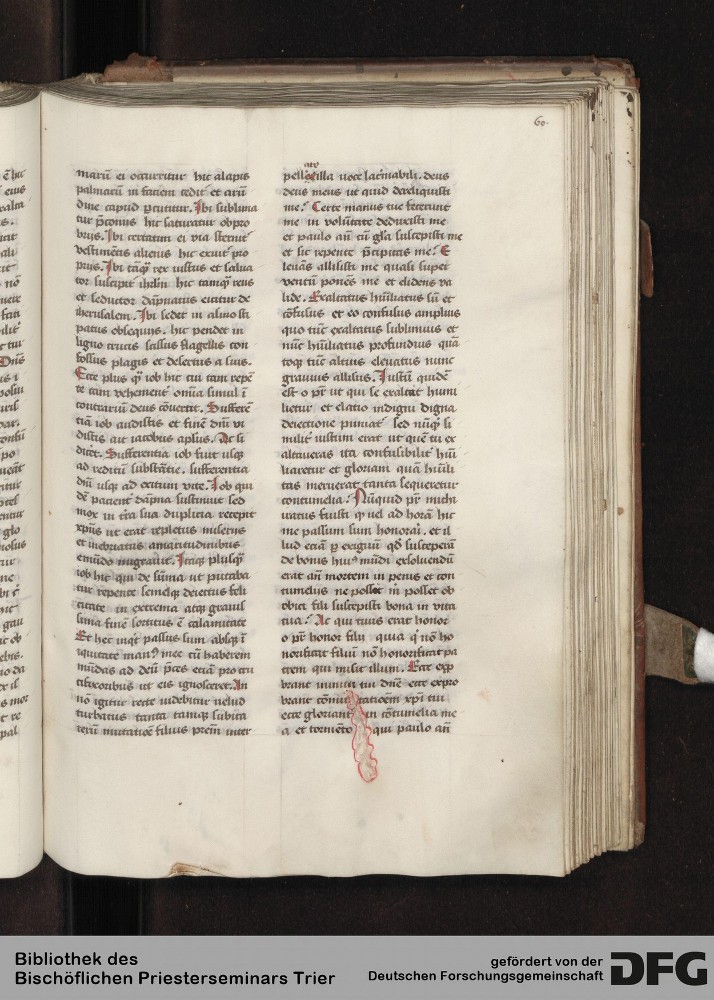 60.
marū ei occurritur hic alapis
palmarū in faciem cedit et arū
dine capud ꝑcutitur. Ibi sublima
tur p̄conus hic saturatur obpro
brijs. Ibi certatim ei via sternit᷑
vestimētis alienis hic exuit᷑ pro
prijs. Ibi tāq̄ rex iustus et salua
tor suscipit᷑ ihrlm̄ hic tamq̄ reus
et seductor dāpnatus eicitur de
iherusalem. Ibi sedet in asino sti
patus obsequijs. hic pendet in
ligno crucis scissus flagellis con
fossus plagis et desertus a suis.
Ecce plus q̄ iob hic cui tam repē
te tam vehement᷑ omīa simul ī
contrariū deus cōuertit. Sufferē
tiā iob audistis et finē dnī vi
distis ait iacobus apl̄us. Ac si
dicet᷑. Sufferentia iob fuit usq̢
ad reditū substātie. sufferentia
dnī usq̢ ad exitum vite. Iob qui
dē pacient᷑ dāpna sustinuit sed
mox in t̄ra sua duplicia recepit
xp̄us ut erat repletus miserijs
et inebriatus amaritudinibus
emūdo migrauit. Itaq̢ plusq̄
iob hic qui de sūma ut putaba
tur repente semelq̢ deiectus feli
citate in extrema atq̢ grauis
sima fuīt sortitus ē calamitate
Et hec inq̄t passus sum absq̢ ī
iquitate man᷒ mee cū haberem
mūdas ad deū p̄ces eciā pro cru
cifixoribus ut eis ignosceret. An
nō igitur recte uidebitur uelud
turbatus tanta tamq̢ subita
rerū mutatiōe filius prēm̄ inter
pellasse illa uoce lac̄mabili. deus
deus meus ut quid dereliquisti
me? Certe manus tue fecerunt
me in volūtate deduxisti me
et paulo an̄ cū gl̄ia suscepisti me
et sic repente p̄cipitas me? E
leuās allisisti me quasi super
ventū ponēs me et elidens va
lide. Exaltatus hūiliatus sū et
cōfusus et eo confusus amplius
quo tūc exaltatus sublimius et
nūc hūiliatus profundius quā
toq̢ tūc altius eleuatus nunc
grauius allisus. Iustū quidē
est o pr̄ ut qui se exaltat humi
lietur et elatio indigni digna
deiectione puniat᷑ sed nūq̢d si
milit᷑ iustum erat ut quē tu ex
altaueras ita confusibilit᷑ hūi
liaretur et gloriam quā hūili
tas meruerat tanta sequeretur
contumelia? Nūquid pr̄ michi
iratus fuisti q̢ uel ad horā hic
me passum sum honorari. et il
lud eciā ꝑ exiguū qd̄ susceperā
de bonis hui᷒ mūdi exsoluendū
erat an̄ mortem in penis et con
tumelijs ne posset m̄ posset ob
obici fili suscepisti bona in vita
tua? Ac qui tuus erat honor
o pr̄ honor filij quia q̢ nō ho
norificat filiū nō honorificat pa
trem qui misit illum. Ecce exp
brant inimici tui dn̄e ecce expro
brant cōmutationem xp̄i tui
ecce gloriant᷑ in cōtumelia me
a et tormēto qui paulo an̄
Bibliothek des
Bischöflichen Priesterseminars Trier
gefördert von der
Deutschen Forschungsgemeinschaft
DFG